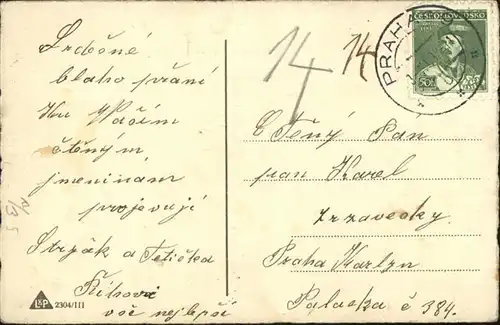 Srdečné
blaho přání
Ku Vašim
ctěným
jmeninám
projevují
Strýčk a Tetička
Říhovi
vše nejlepší
L&P 2304/III
14 14
PRAHA
ČESKOSLOVENSKO
50h
Ctěný Pan
pan Karel
Zrzavecky
Praha Karlyn
Palacka č 384.